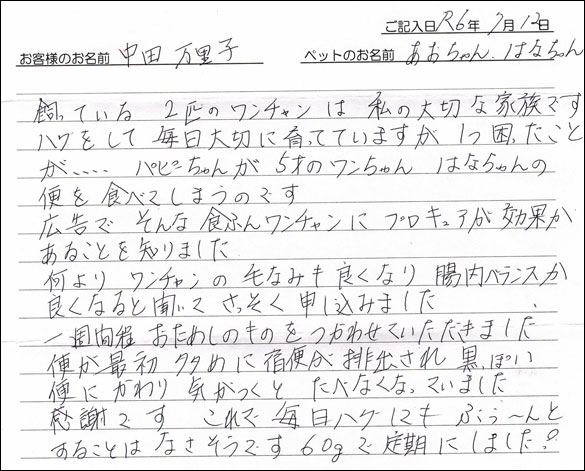 ご記入日 R6年 7月12日
お客様のお名前 中田 万里子 ペットのお名前 あおちゃん、はなちゃん
飼っている 2匹のワンチャンは 私の大切な家族です
ハグをして 毎日大切に育っていますが 1つ困ったこと
が、、、、 パピーちゃんが 5才のワンちゃん はなちゃんの
便を食べてしまうのです
広告で そんな食ふんワンチャンに プロキュアが効果が
あることを知りました
何より ワンチャンの毛なみも良くなり 腸内バランスが
良くなると聞いて さっそく申し込みました
一週間程 おためしのものをつかわせていただきました
便が最初 タタめに宿便が排出され 黒っぽい
便にかわり 気がつくと たべなくなっていました
感謝です これで毎日ハグにも ぶぅ〜んと
することはなさそうです 60gで定期にしました?